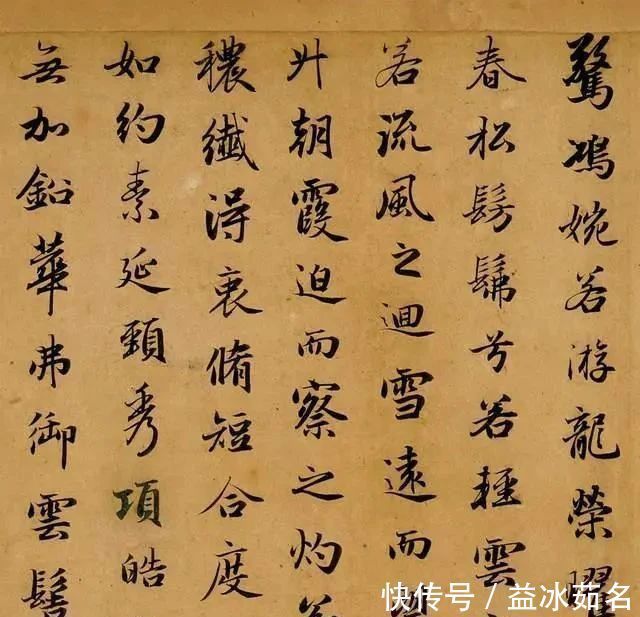 驚鴻婉若游龍榮曜
春松髣髴兮若輕雲
若流風之迴雪遠而
升朝霞迫而察之灼
穠纖得衷脩短合度
如約素延頸秀項皓
無加鉛華弗御雲髻
快传号 / 益冰茹名